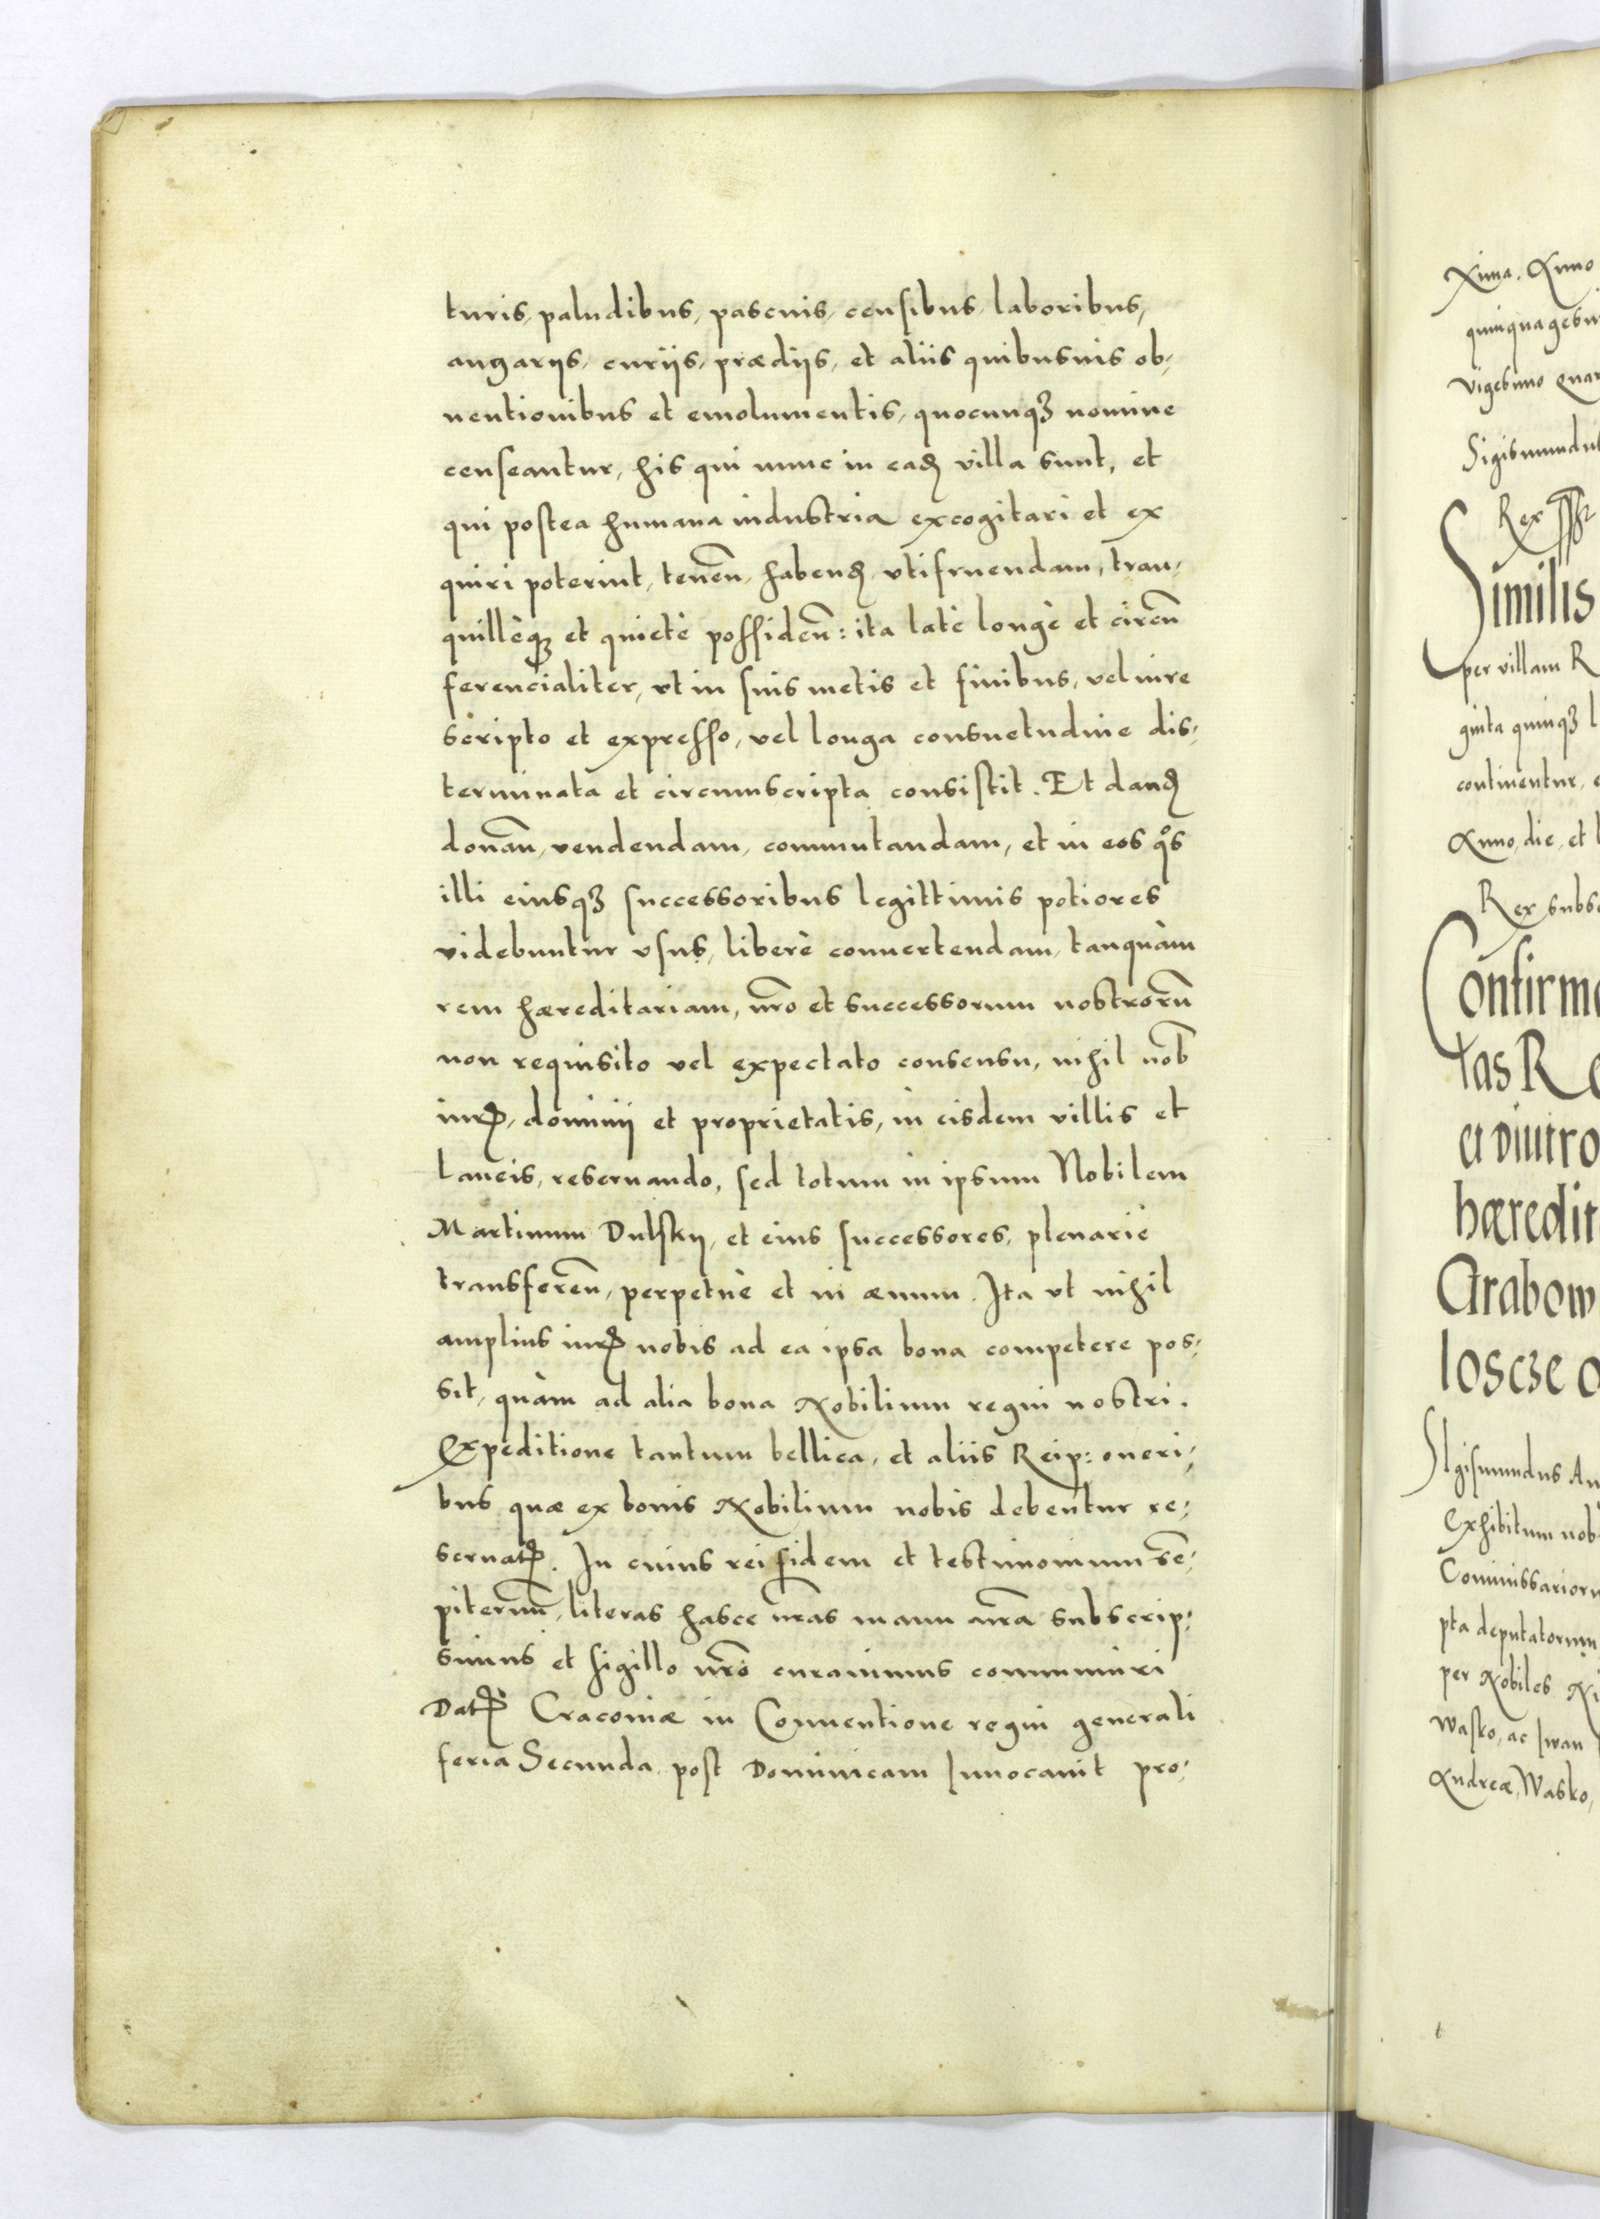 turis, paludibus, pascuis, censibus, laboribus,
angarijs, curijs, prædijs, et alijs quibusuis ob,
uentionibus et emolumentis, quocunqꝫ nomine
censeantur, his qui nunc in eadꝫ villa sunt, et
qui postea humana industria excogitari et ex
quiri poterint, tenen̄, habendꝫ, vtifruendam, tran,
quillèqꝫ et quietè possiden̄: ita latè longè et circū
ferencialiter, vt in suis metis et finibus, vel iure
scripto et expresso, vel longa consuetudine dis,
terminata et circumscripta consistit. Et dandꝫ
donan̄, vendendam, commutandam, et in eos qͦs
illi eiusqꝫ successoribus legittimis potiores
videbuntur vsus, liberè conuertendam, tanquàm
rem hæreditariam, nr̄o et successorum nostrorū
non requisito vel expectato consensu, nihil nob̄
iurꝭ, dominij et proprietatis, in eisdem villis et
laneis, reseruando, sed totum in ipsum Nobilem
Martinum Dulskij, et eius successores, plenariè
transferen̄, perpetuè et in æuum. Ita vt nihil
amplius iurꝭ nobis ad ea ipsa bona competere pos,
sit, quàm ad alia bona Nobilium regni nostri.
Expeditione tantum bellica, et alijs Reip: oneri,
bus quæ ex bonis Nobilium nobis debentur re,
seruatꝭ. In cuius rei fidem et testimonium sē,
piternū, literas hasce nr̄as manu nr̄a subscrip,
simus et sigillo nr̄o curauimus communiri
Datꝭ Cracouiæ in Conuentione regni generali
feria Secunda post Dominicam Inuocauit pro,
xima. Anno
quinquagesi
vigesimo quar
Sigismundus
Rex
Similis
per villam R
ginta quinqꝫ l
continentur, e
Anno, die, et l
Rex subsc
Confirma
tas Re
et Dmitro
hæredit
Grabow
loscze o
Sigismundus Au
Exhibitum nob
Commissarioru
pta deputatorum
per Nobiles Ni
Wasko, ac Iwan
Andreæ, Wasko,